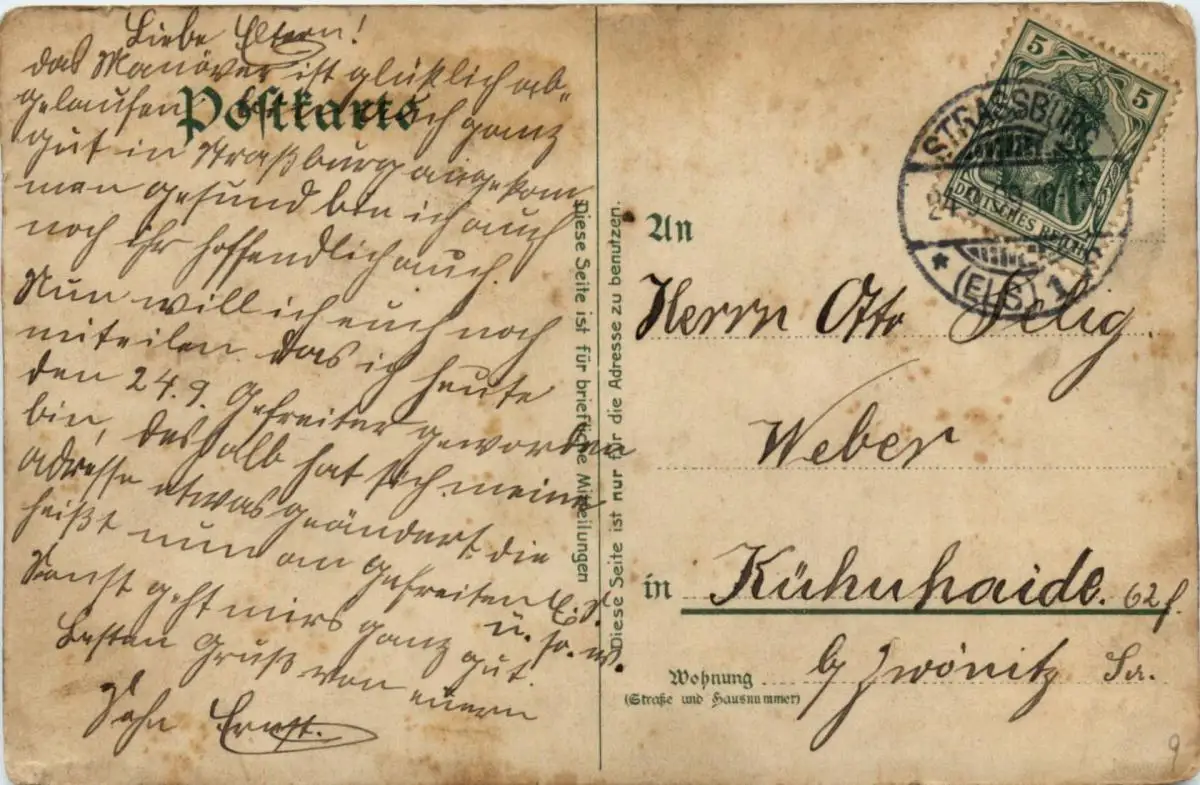 Liebe Eltern!
das Manöver ist glüklich ab-
gelaufen bin auch ganz
gut in Straßburg angekom
men gesund bin ich auch
noch ihr hoffendlich auch.
Nun will ich euch noch
miteilen das ich heute
den 24.9. Gefreiter geworden
bin, deshalb hat sich meine
adresse etwas geändert die
heißt nun an Gefreiten E. S.
u. so. w.
Sonst geht mirs ganz gut
Besten Gruß von euern
Sohn Ernst.
Postkarte
Diese Seite ist für briefliche Mitteilungen
Diese Seite ist nur für die Adresse zu benutzen.
5 5
DEUTSCHES REICH
STRASSBURG
24.9.09.
* (ELS) 1
An
Herrn Otto Selig.
Weber
in Kühnhaide. 62 f.
by Zwönitz Sa.
Wohnung
(Straße und Hausnummer)
9